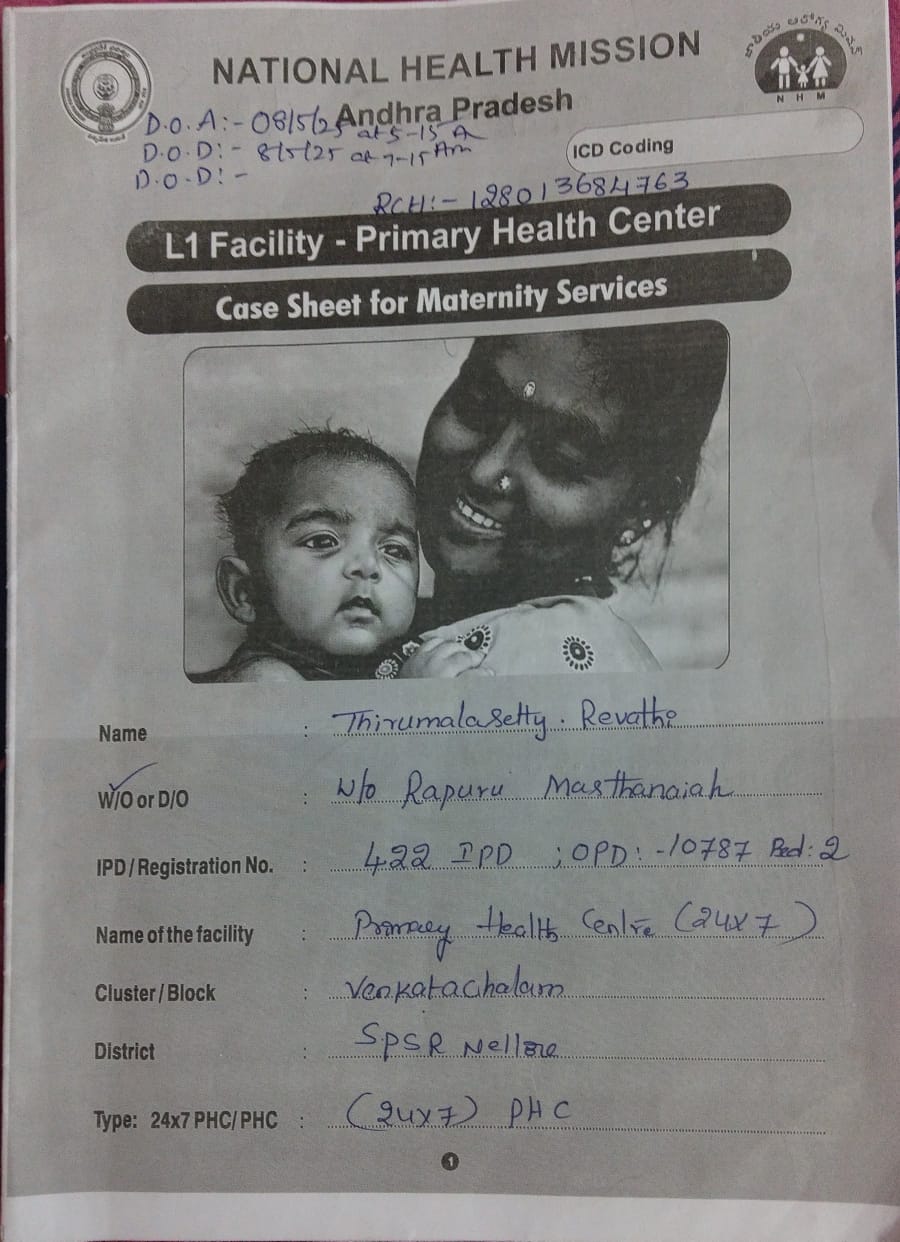 జాతీయ ఆరోగ్య మిషన్
NATIONAL HEALTH MISSION
Andhra Pradesh
N H M
D.O.A:- 08/5/25 at 5-15 A
D.O.D:- 8/5/25 at 7-15 Am
D.O.D:-
ICD Coding
RCH:- 128013684763
L1 Facility - Primary Health Center
Case Sheet for Maternity Services
Name : Thirumalasetty. Revathi
W/O or D/O : W/o Rapuru Masthanaiah
IPD / Registration No. : 422 IPD ; OPD: -10787 Bed: 2
Name of the facility : Primary Health Centre (24x7)
Cluster / Block : Venkatachalam
District : SPSR Nellore
Type: 24x7 PHC/ PHC : (24x7) PHC
1